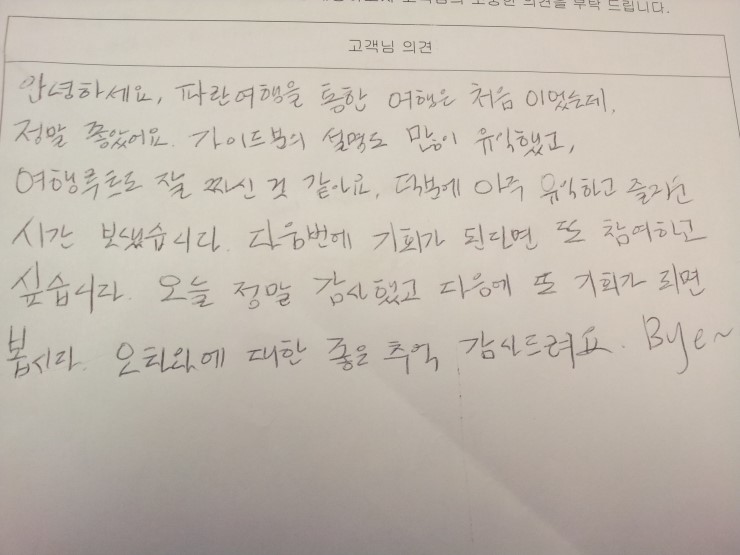 고객님의 소중한 의견을 부탁 드립니다.
고객님 의견
안녕하세요, 파란여행을 통한 여행은 처음 이었는데,
정말 좋았어요. 가이드분의 설명도 많이 유익했고,
여행루트도 잘 짜신 것 같아요, 덕분에 아주 유익하고 즐거운
시간 보냈습니다. 다음번에 기회가 된다면 또 참여하고
싶습니다. 오늘 정말 감사했고 다음에 또 기회가 되면
봅시다. 오타와에 대한 좋은 추억 감사드려요. Bye~